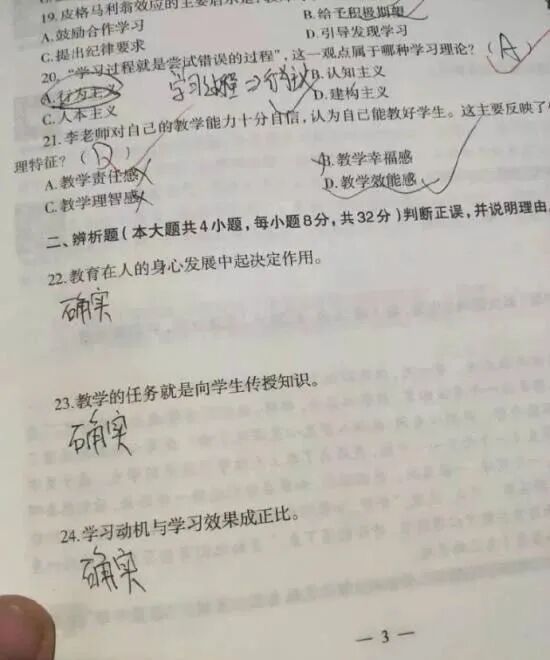 19.皮格马利翁效应的主要启示是
A.鼓励合作学习 B.给予积极期望
C.提出纪律要求 D.引导发现学习
20.“学习过程就是尝试错误的过程”，这一观点属于哪种学习理论？（A）
A.行为主义 学习过程 B.认知主义
C.人本主义 D.建构主义
21.李老师对自己的教学能力十分自信，认为自己能教好学生。这主要反映了
理特征？（D）
A.教学责任感 B.教学幸福感
C.教学理智感 D.教学效能感
二、辨析题（本大题共4小题，每小题8分，共32分）判断正误，并说明理由。
22.教育在人的身心发展中起决定作用。
确实
23.教学的任务就是向学生传授知识。
确实
24.学习动机与学习效果成正比。
确实
— 3 —